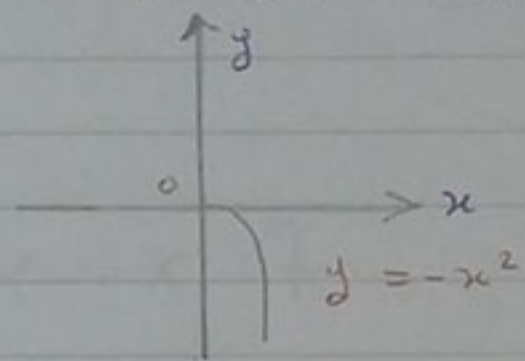 y
0
x
y = -x²